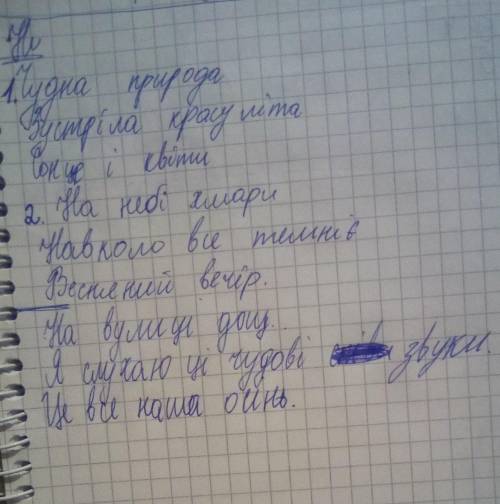 1. Чудна природа
Зустріла красу літа
Сонце і квіти
2. На небі хмари
Навколо все темніє
Весняний вечір.
На вулиці дощ.
Я слухаю ці чудові звуки.
Це все наша осінь.